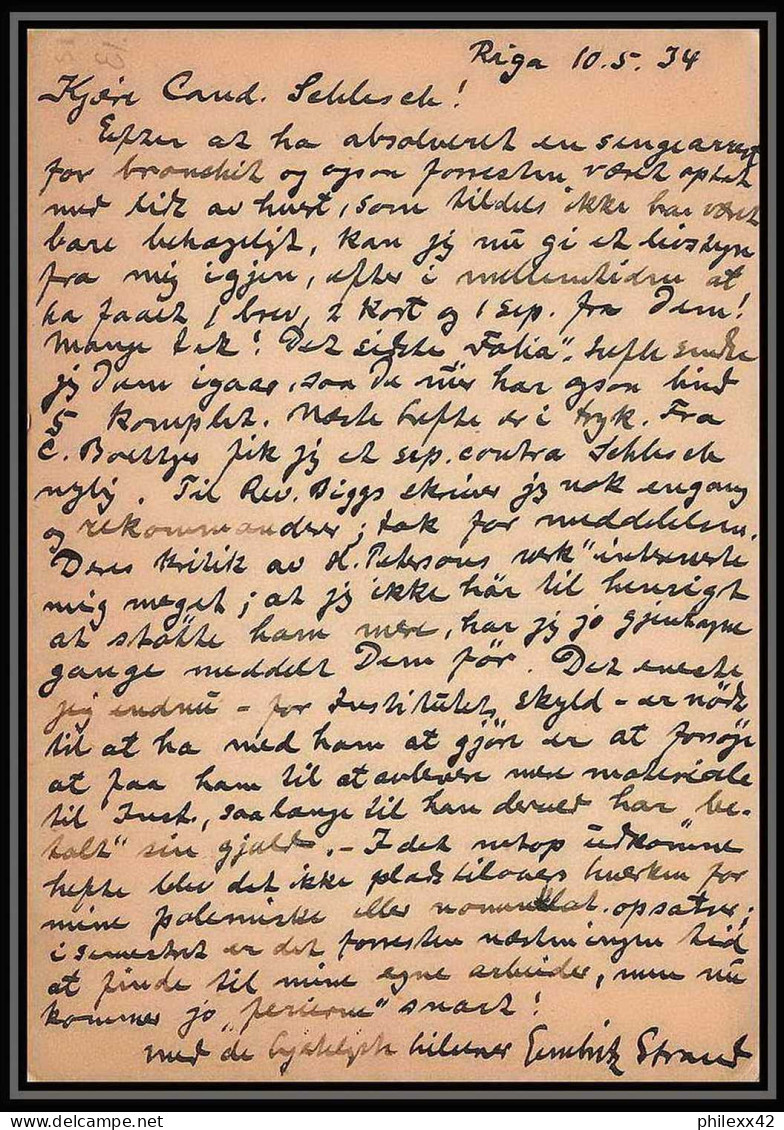 Riga 10.5.34
Kjære Cand. Schlesch!
Efter at ha absolveret en sengearrest
for bronchit og ogsaa forresten været optat
med litt av hvert, som tildels ikke har været
bare behageligt, kan jeg nu gi et livstegn
fra mig igjen, efter i mellemtiden at
ha faaet 1 brev, 2 kort og 1 sep. fra Dem!
Mange tak! Det sidste „Folia"-hefte sendte
jeg Dem igaar, saa De nu har ogsaa bind
5 komplet. Næste hefte er i tryk. Fra
C. Boettger fik jeg et sep. contra Schlesch
nylig. Til Rev. Biggs skriver jeg nok engang
og rekommanderer; tak for meddelelsen.
Deres kritik av H. Petersons værk interesserte
mig meget; at jeg ikke har til hensigt
at støtte ham mere, har jeg jo gjentagne
gange meddelt Dem før. Det eneste
jeg endnu – for Institutets skyld – er nødt
til at ha med ham at gjøre er at forsøge
at faa ham til at avlevere mere materiale
til Inst., saalange til han derved har „be-
talt" sin gjæld. – I det netop utkomne
hefte blev det ikke plads tilovers hverken for
mine polemiske eller opsatser;
i semestret er det forresten næsten ingen tid
at finde til mine egne arbeider, men nu
kommer jo „ferierne" snart!
med de hjerteligste hilsener Embrik Strand
philexx42